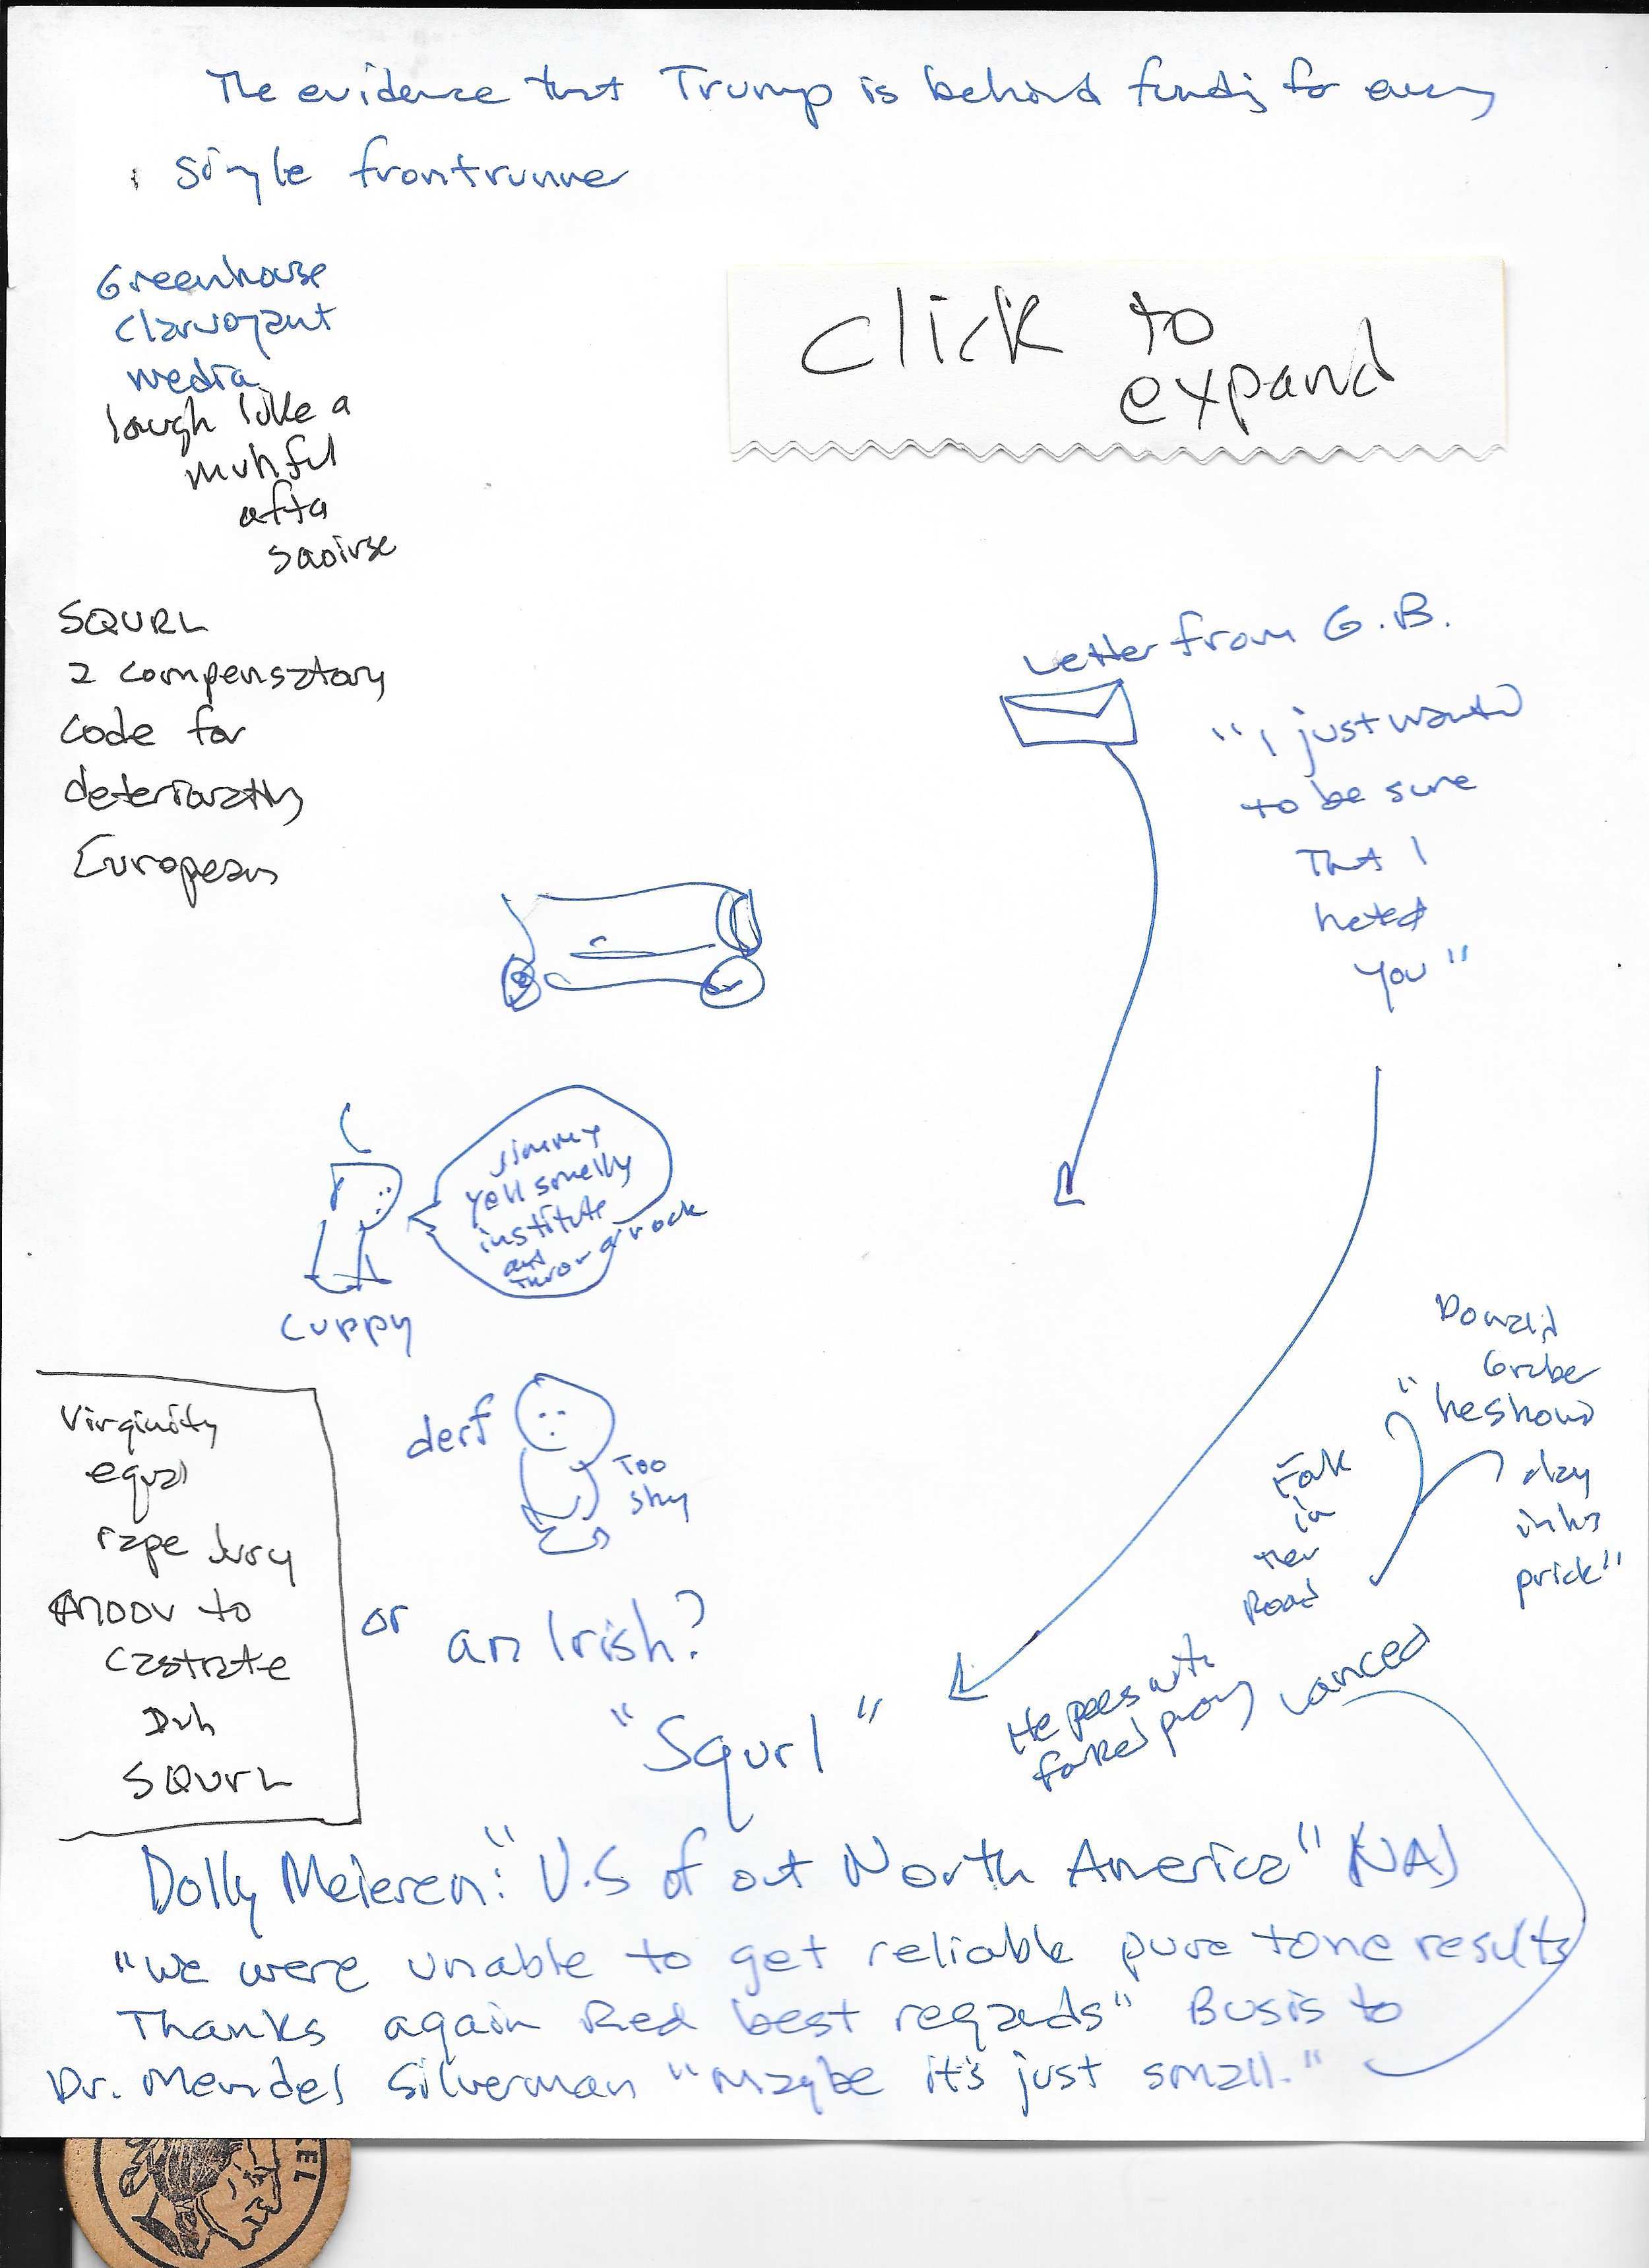 The evidence that Trump is behind fundig for every
single frontrunner
Greenhouse
clarvoyant
media
laugh like a
muhful
afta
saoirse
click to
expand
SQURL
2 compensatory
code for
European
Letter from G.B.
"I just wanted
to be sure
That I
hated
you"
Jimmy
yell smelly
institute
and
throw a rock
cuppy
derf
Too
shy
Virginity
equal
rape
to
castrate
Duh
SQURL
or
an Irish?
"Squrl"
Donald
Graber
"heshowd
day
inhis
prick"
Fork
in
Road
He pees with
forked
Lanced
Dolly Meieren: "U.S of out North America" (NA)
"We were unable to get reliable pure tone results
Thanks again Red best regards" Busis to
Dr. Mendel Silverman "Maybe it's just small."
EL